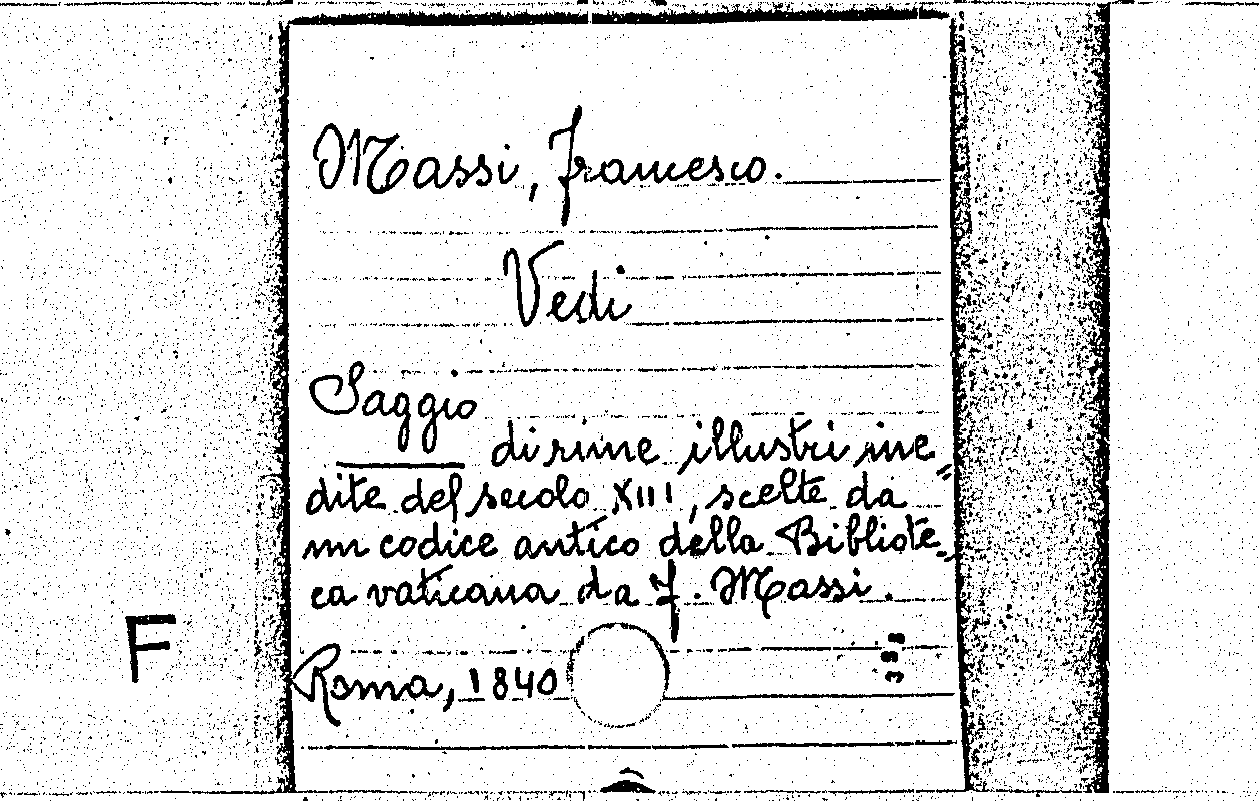 Massi, Francesco.
Vedi
Saggio
di rime illustri ine„
dite del secolo XIII, scelte da
un codice antico della Bibliote„
ca vaticana da F. Massi.
F
Roma, 1840